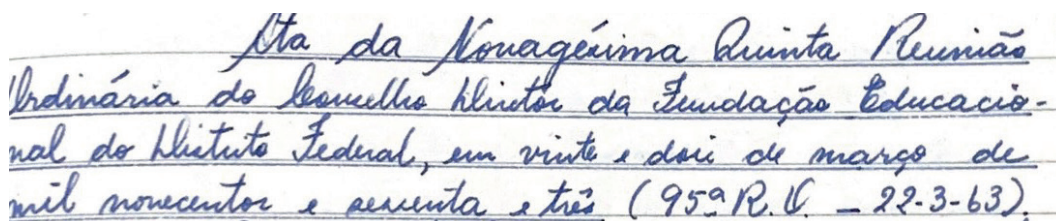 Ata da Nonagésima Quinta Reunião
Ordinária do Conselho Diretor da Fundação Educacio-
nal do Distrito Federal, em vinte e dois de março de
mil novecentos e sessenta e três (95ª R.O. - 22-3-63).